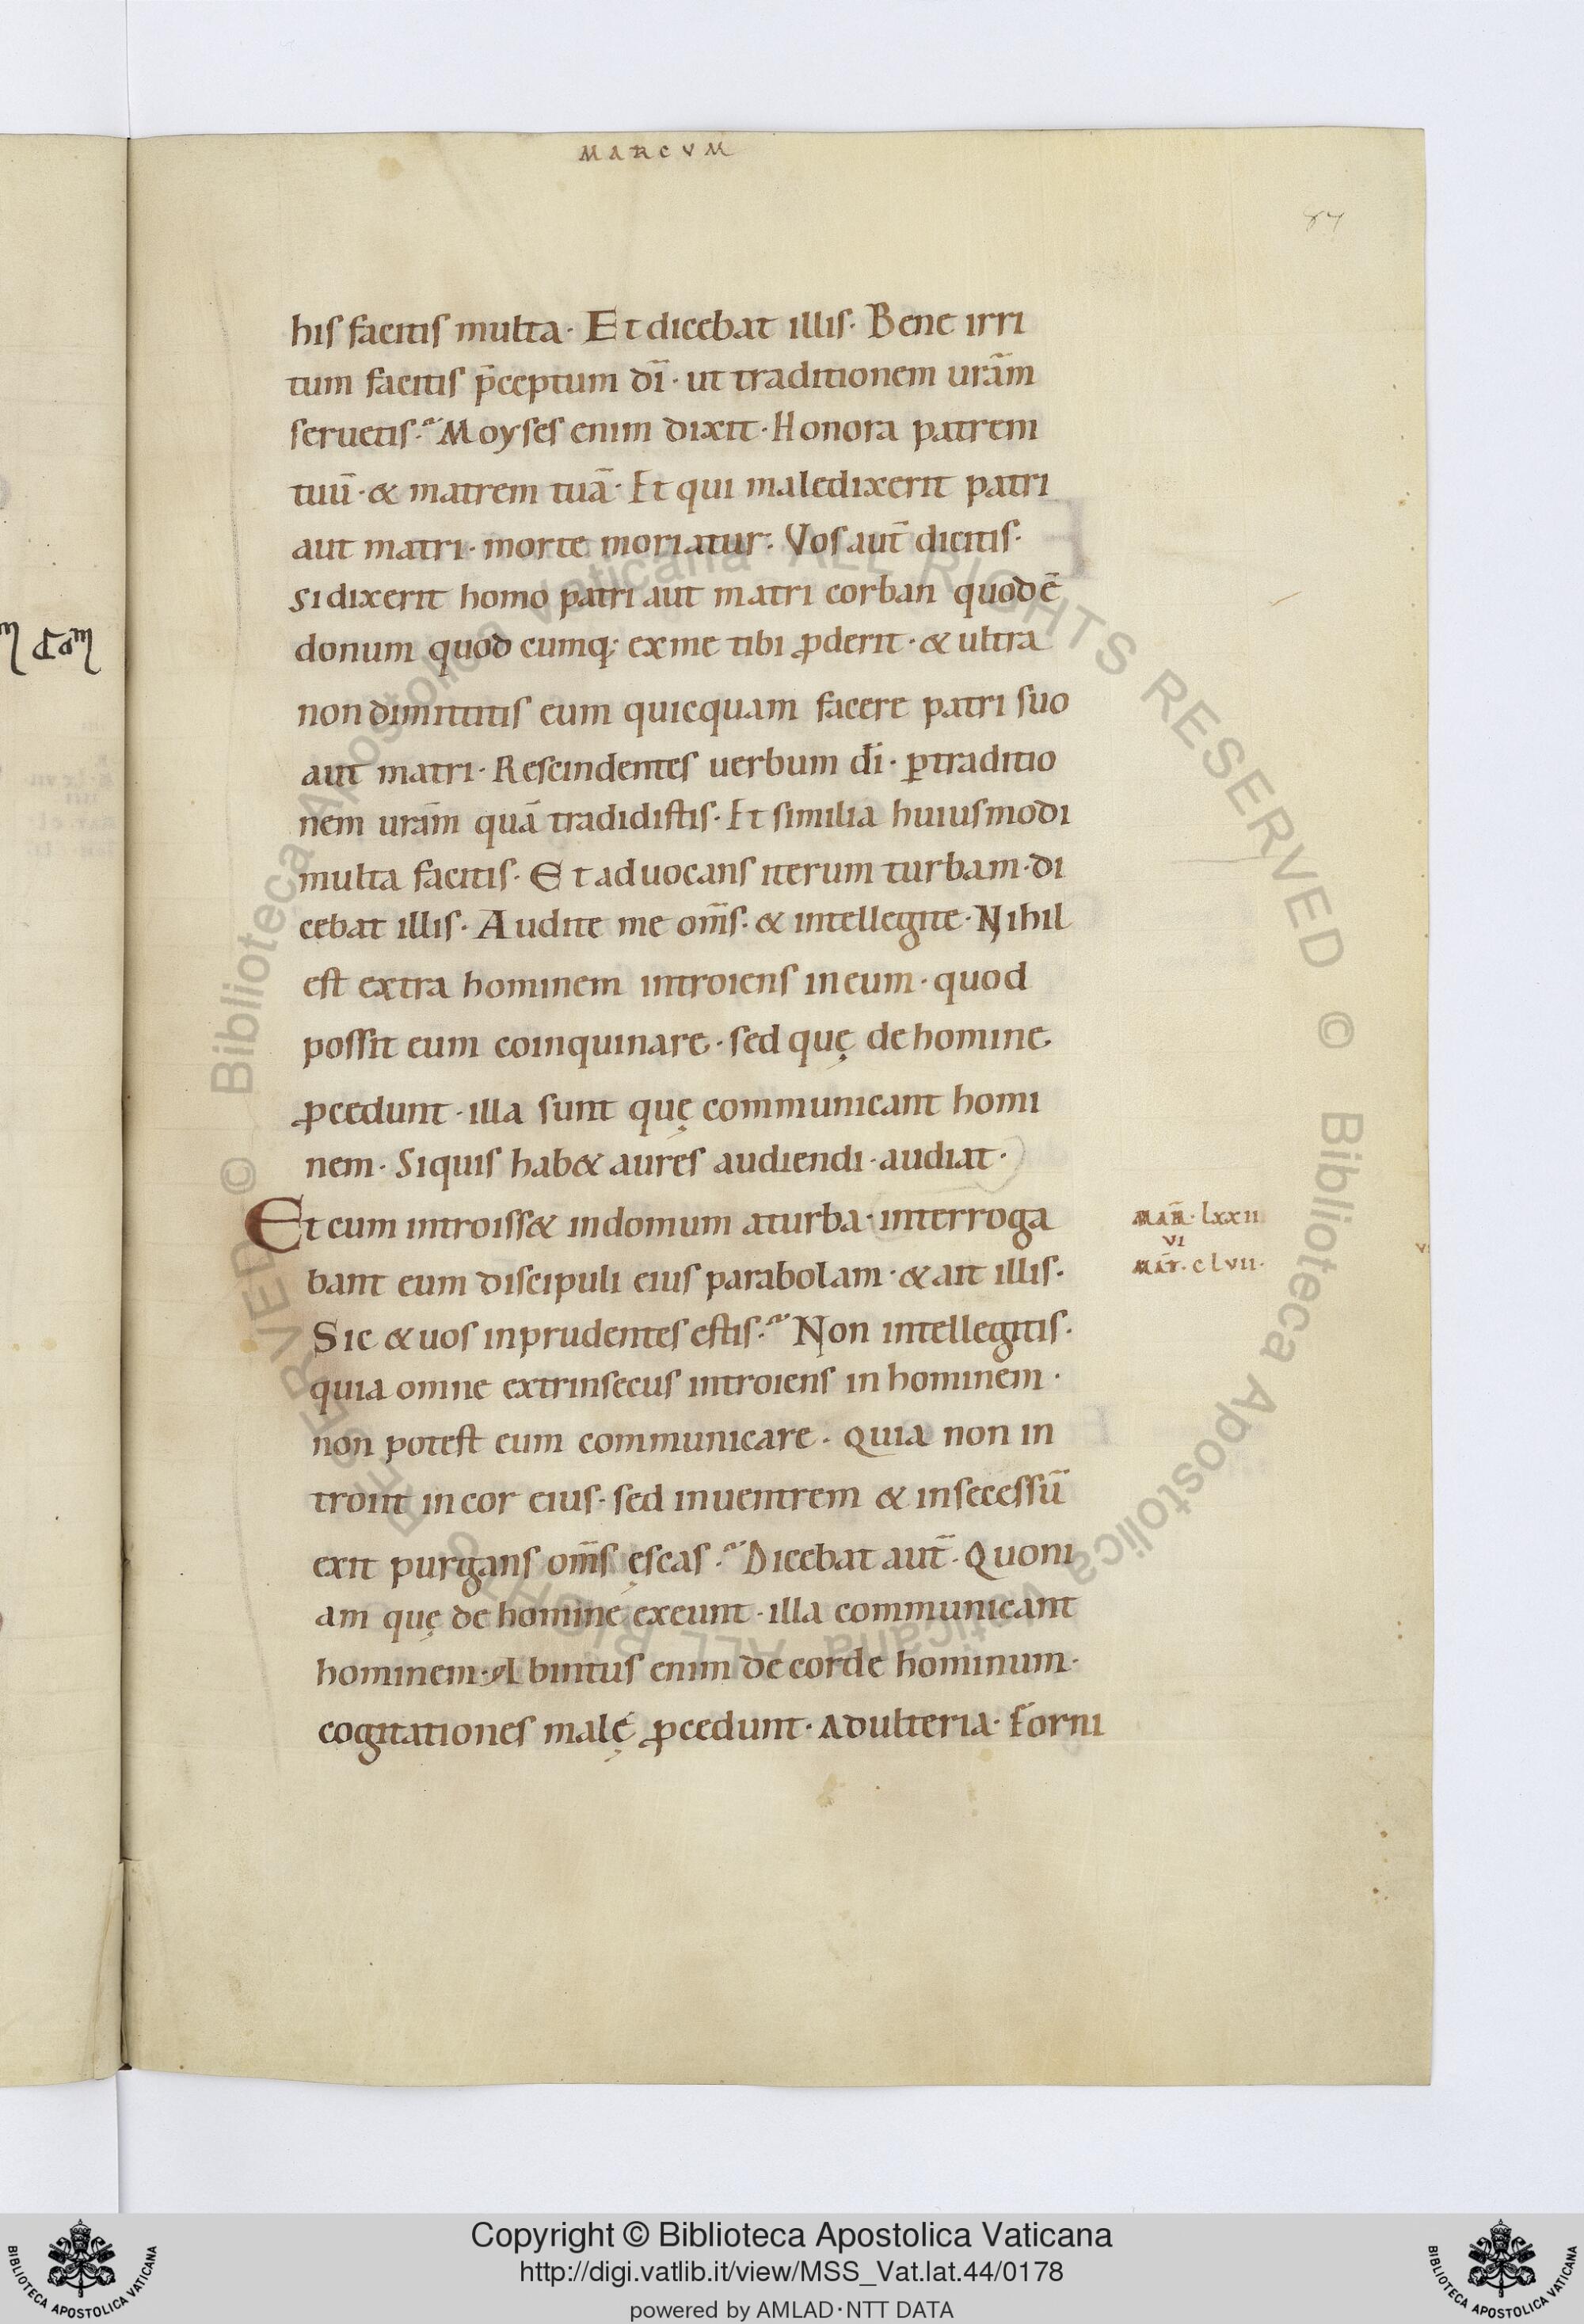 MARCVM
87
his facitis multa· Et dicebat illis· Bene irri
tum facitis p̄ceptum dī· ut traditionem urām
seruetis· Moyses enim dixit· Honora patrem
tuū· & matrem tuā· Et qui maledixerit patri
aut matri· morte moriatur· Vos aut̄ dicitis·
Si dixerit homo patri aut matri corban quod ē
donum quod cumq; ex me tibi ꝓderit· & ultra
non dimittitis eum quicquam facere patri suo
aut matri· Rescindentes uerbum dī· ꝑ traditio
nem urām quā tradidistis· Et similia huiusmodi
multa facitis· Et aduocans iterum turbam· di
cebat illis· Audite me om̄s· & intellegite· Nihil
est extra hominem introiens in eum· quod
possit eum coinquinare· sed quę de homine
ꝓcedunt· illa sunt quę communicant homi
nem· Siquis hab& aures audiendi· audiat·
Et cum introiss& in domum a turba· interroga
bant eum discipuli eius parabolam· & ait illis·
Sic & uos inprudentes estis· Non intellegitis·
quia omne extrinsecus introiens in hominem·
non potest eum communicare· Quia non in
troit in cor eius· sed in uentrem & in secessū
exit purgans om̄s ęscas· Dicebat aut̄· Quoni
am quę de homine exeunt· illa communicant
hominem· Ab intus enim de corde hominum·
cogitationes malę ꝓcedunt· Adulteria· Forni
MAR̄· lxxii
VI
MAT̄· clvii·
© Biblioteca Apostolica Vaticana ALL RIGHTS RESERVED
© Biblioteca Apostolica Vaticana ALL RIGHTS RESERVED
Copyright © Biblioteca Apostolica Vaticana
http://digi.vatlib.it/view/MSS_Vat.lat.44/0178
powered by AMLAD·NTT DATA
BIBLIOTECA APOSTOLICA VATICANA
BIBLIOTECA APOSTOLICA VATICANA